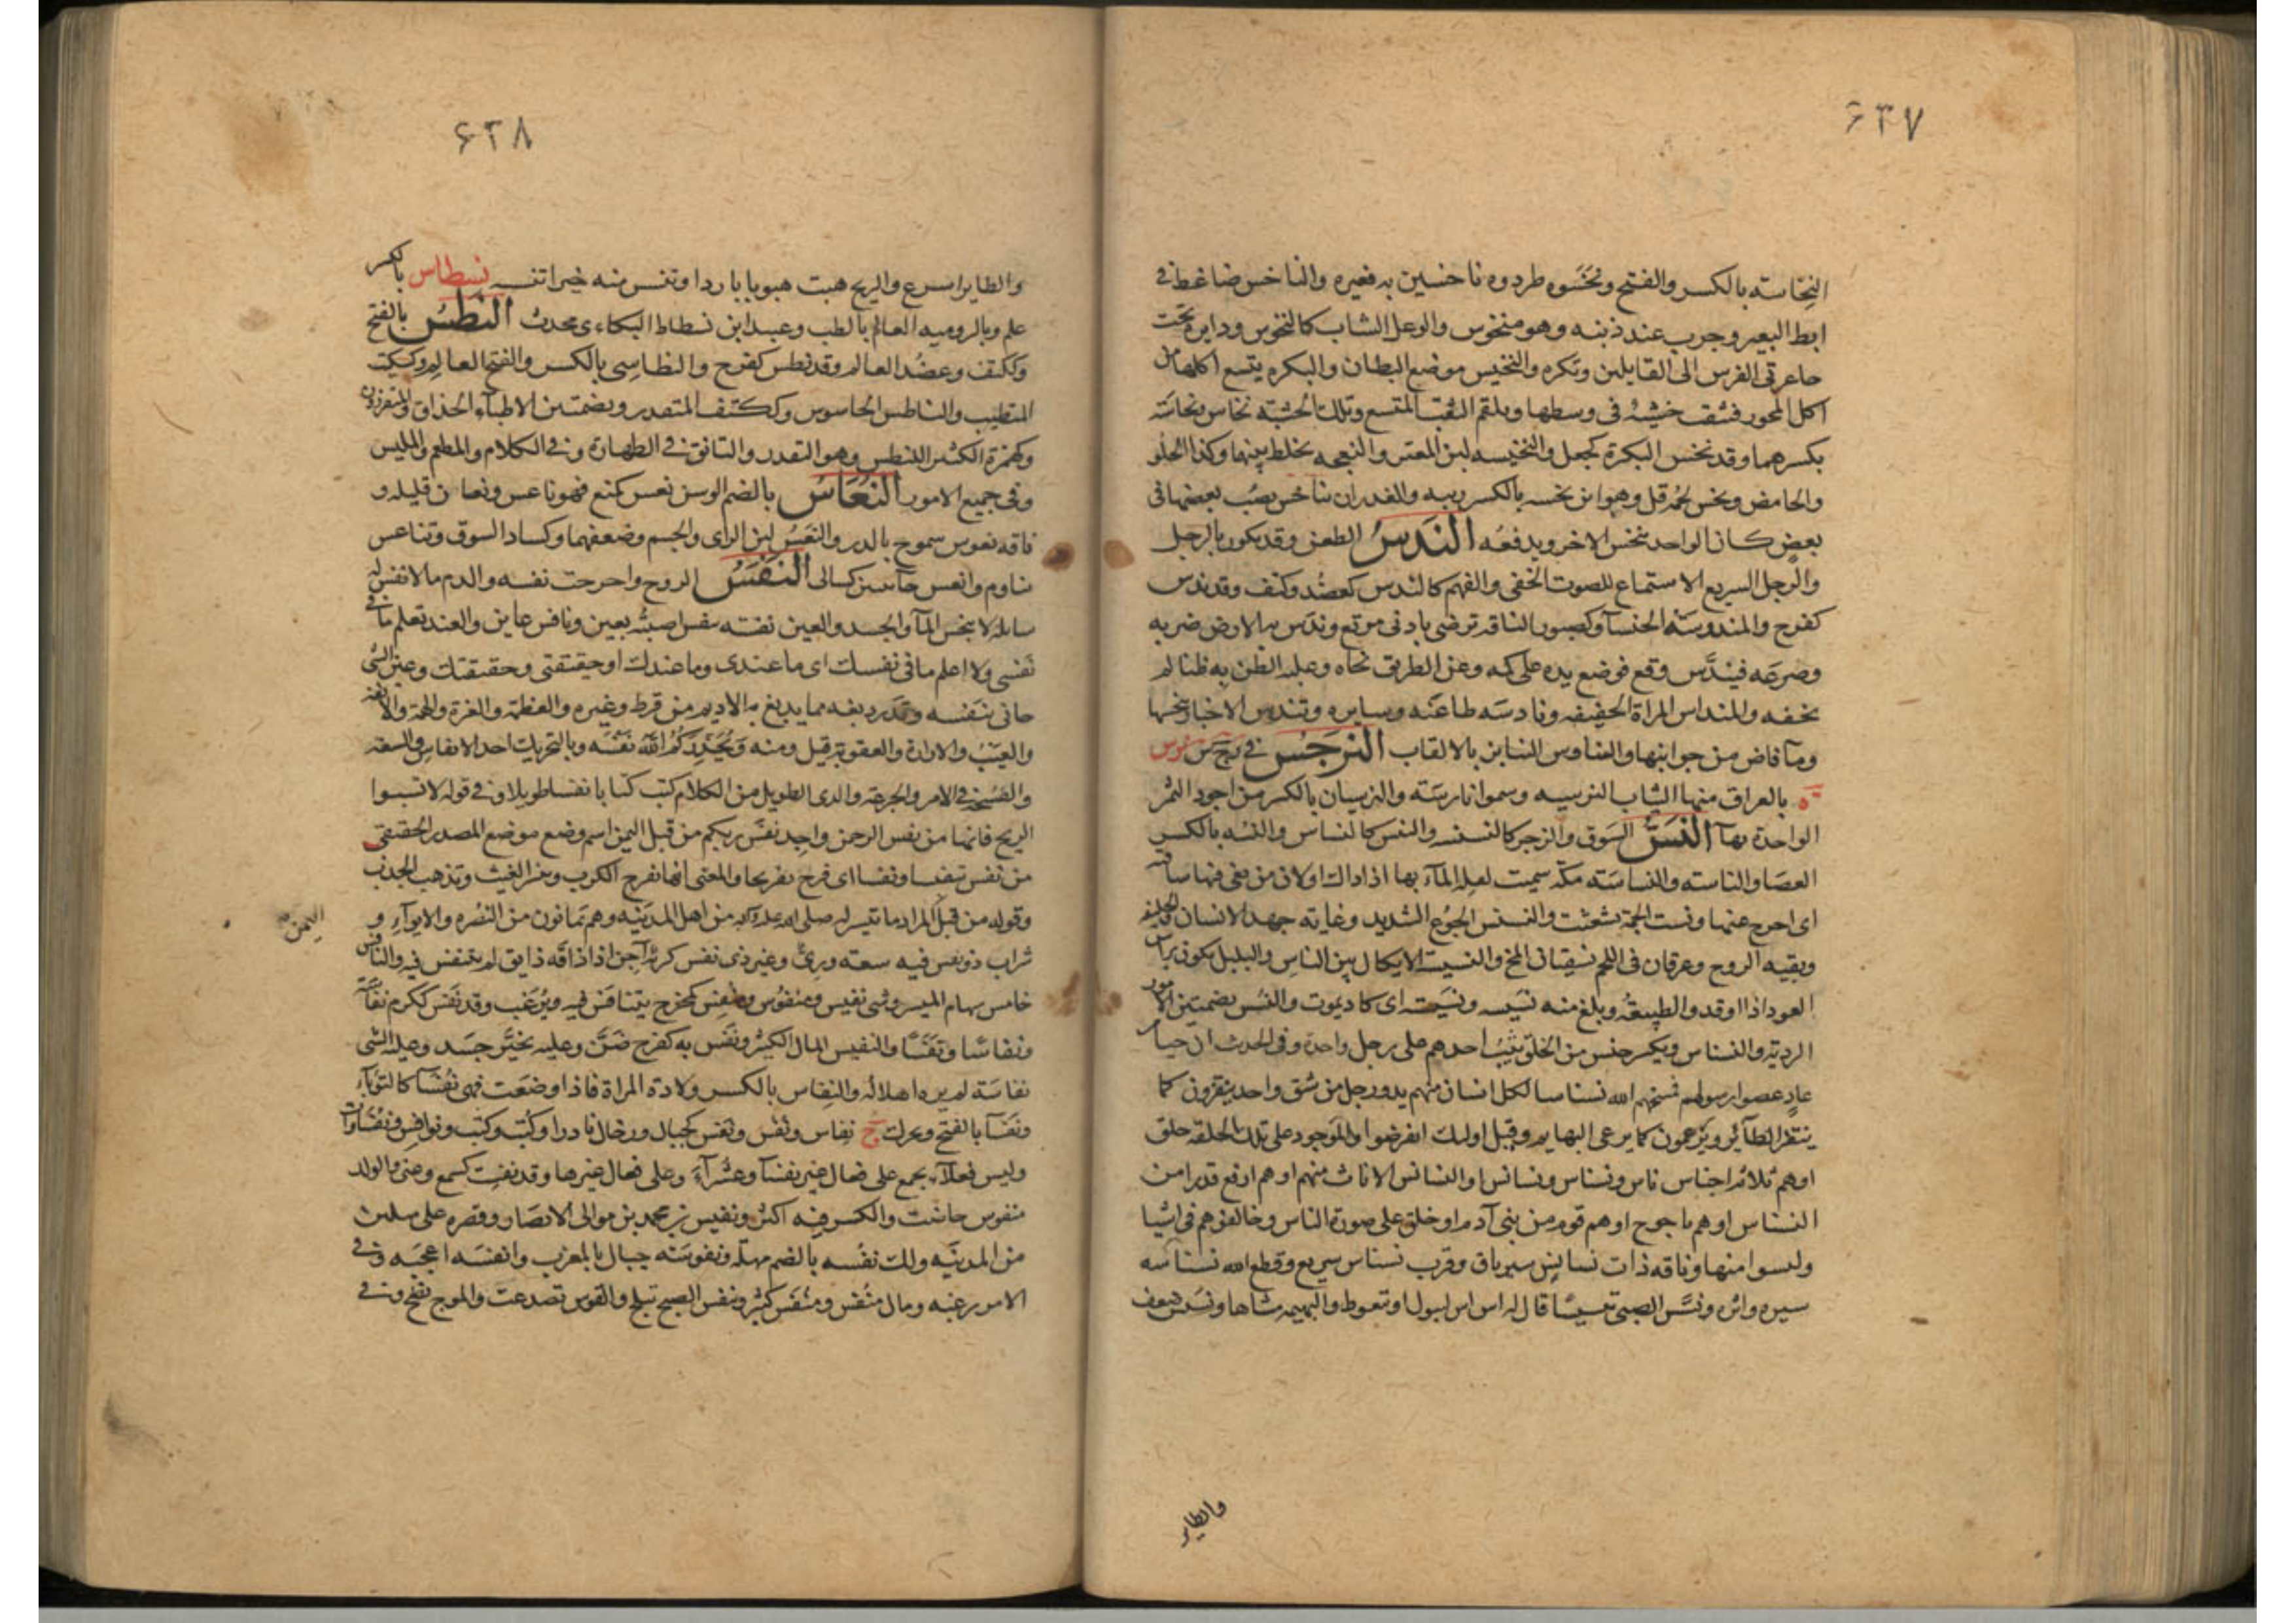 ۶۳۷
النخاسته بالكسر والفتح ونخسوه طردوه ناخسين به فعيره والناخس ضاغط فى
ابط البعير وجرب عند ذنبه وهو منخوس والوعل الشاب كالنخوس ودايره تحت
جاعرتى الفرس الى القايلين وتكره والنخيس موضع البطان والبكره يتسع اكلها من
اكل المحور فيثقب خشبة فى وسطها ويلقم الثقب المتسع وتلك الخشبة نخاس ونخاسته
بكسرهما وقد نخس البكرة كجعل والنخيسه لبن المعز والنعجه يخلط بينهما وكذا الحلو
والحامض ونخس لحمه قل وهو ابن نخسه بالكسر زينه والغدران تناخس يصب بعضها فى
بعض كان الواحد ينخس الاخر ويدفعه الندس الطعن وقد يكون بالرجل
والرجل السريع الاستماع للصوت الخفى والفهم كالندس كعضد وكتف وقد ندس
كفرح والمندوسة الخنسآ وكصبور الناقه ترضى بادنى مرتع وندس به الارض ضربه
وصرعه فيندس وقع فوضع يده على فمه وعن الطريق نحاه وعليه الظن به ظنا لم
يخفه والمنداس المراة الخفيفه ونادسه طاعنه وسايره وتندس الاخبار تنخسها
ومآ فاض من جوانبها والتنادس التنابز بالالقاب النرجس فى رج س نرس
ة بالعراق منها الثياب النرسيه وسموا نارسة والنرسيان بالكسر من اجود التمر
الواحدة بهآ النس السوق والزجر كالنسنسه والنس كالنساس والنسه بالكسر
العصا والناسته والنساسته مكة سميت لقله المآء بها اذاذاك اولان من بغى فيها ساقته
اى اخرج عنها ونست الجمة تشعثت والنسنس الجوع الشديد وغايته جهد الانسان والخليقة
وبقيه الروح وعرقان فى اللحم يسقيان المخ والنسيسة الايكال بين الناس والبلل يكون براس
العود اذا اوقد والطبيعة وبلغ منه نسيسه ونسيسته اى كاد يموت والنسس بضمتين الامور
الردية والنسناس ويكسر جنس من الخلق يثب احدهم على رجل واحدة وفى الحدث ان حيا من
عاد عصوا رسولهم فمسخهم الله نسناسا لكل انسان منهم يد ورجل من شق واحد ينقزون كما
ينقز الطائر ويرعون كما يرعى البهايم وقيل اوليك انقرضوا والموجود على تلك الخلقه خلق
اوهم ثلاثه اجناس ناس ونسناس ونسانس او النسانس الاناث منهم اوهم ارفع قدرا من
النسناس اوهم ياجوج اوهم قوم من بنى آدم او خلق على صورة الناس وخالفوهم فى اشيا
وليسوا منها وناقه ذات نسانس سير باق وقرب نسناس سريع وقطع الله نسناسه
سيره واثره ونسس الصبى تنسيسا قال له اس اس ليبول او تغوط والبهيمه مشاها ونسنس ضعف
والطاير
۶۳۸
والطاير اسرع والريح هبت هبوبا باردا وتنسس منه خيرا تنسمه نسطاس بالكسر
علم وبالروميه العالم بالطب وعبيد ابن نسطاط البكاءى محدث النطس بالفتح
وككتف وعضد العالم وقد نطس كفرح والنطاسى بالكسر والفتح العالم وكسكيت
المتطبب والناطس الجاسوس وككتف المتقدر وبضمتين الاطبآء الحذاق والمتقززون
وكهمزة الكثير التنطس وهو التقدر والتانق فى الطهارة وفى الكلام والمطعم والملبس
وفى جميع الامور النعاس بالضم الوسن نعس كمنع فهو ناعس ونعسان قليله و
ناقه نعوس سموح بالدر والنعس لين الراى والجسم وضعفهما وكساد السوق وتناعس
تناوم وانعس جآ ببنين كسالى النفس الروح وخرجت نفسه والدم ما لا نفس له
سايله لا ينجس المآ والجسد والعين نفسته بنفس اصبته بعين ونافس عاين والعند تعلم ما فى
نفسى ولا اعلم ما فى نفسك اى ما عندى وما عندك او حقيقتى وحقيقتك وعين الشى
جانى بنفسه وقدر دبغه مما يدبغ به الاديم من قرظ وغيره والعظمة والعزة والهمة والانفة
والعيب والارادة والعقوبة قيل ومنه ويحذركم الله نفسه وبالتحريك احد الانفاس والسعة
والفسحة فى الامر والجرعة والرى الطويل من الكلام كتب كتابا نفسا طويلا وفى قوله لا تسبوا
الريح فانها من نفس الرحمن واجد نفس ربكم من قبل اليمن اسم وضع موضع المصدر الحقيقى
من نفس تنفيسا ونفسا اى فرج تفريجا والمعنى انها تفرج الكرب وينشر الغيث وتذهب الجدب
وقوله من قبل المراد ما تيسر له صلى الله عليه وآله من اهل المدينه وهم يمانون من النصره والايوآء و
اليمن
شراب ذو نفس فيه سعته ورى وغير ذى نفس كريه آجن اذا ذاقه ذايق لم يتنفس فيه والنافس
خامس سهام الميسر وشى نفيس ومنفوس ومنفس كمخرج يتنافس فيه ويرغب وقد نفس ككرم نفاسة
ونفاسا ونفسا والنفيس المال الكثير ونفس به كفرح ضن وعليه بخير حسد وعليه الشى
نفاسة لم يره اهلا له والنفاس بالكسر ولادة المراة فاذا وضعت فهى نفسآ كالثوبآء
ونفسآ بالفتح ويحرك ج نفاس ونفس ونفس كجبال ورخال نادرا وكتب وكتب ونوافس ونفساوات
وليس فعلآء يجمع على فعال غير نفسآ وعشرآء وعلى فعال غيرها وقد نفست كسمع وعنى والولد
منفوس حاضت والكسر فيه اكثر ونفيس بن محمد من موالى الانصار وقصره على ميلين
من المدينه ولك نفسه بالضم مهلة ونفوسته جبال بالمغرب وانفسه اعجبه وفى
الامر رغبه ومال منفس ومنفس كثير ونفس الصبح تبلج والقوس تصدعت والموج نضح وفى